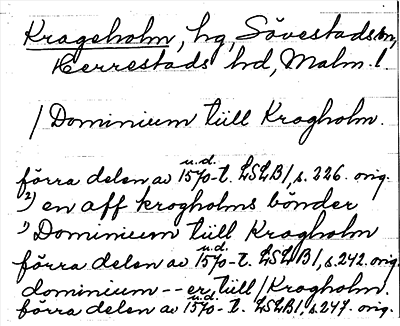 Krageholm, hg, Sövestads sn,
Herrestads hd, Malm. l.
/ Dominium tüll Kragholm.
u.d.
förra delen av 1570-t. LSLB1, s. 226. orig.
2) en aff krogholms bönder
1) Dominium tüll Kragholm
u.d.
förra delen av 1570-t. LSLB1, s. 242. orig.
dominium -- er, tüll / Kragholm.
u.d.
förra delen av 1570-t. LSLB1, s. 247. orig.